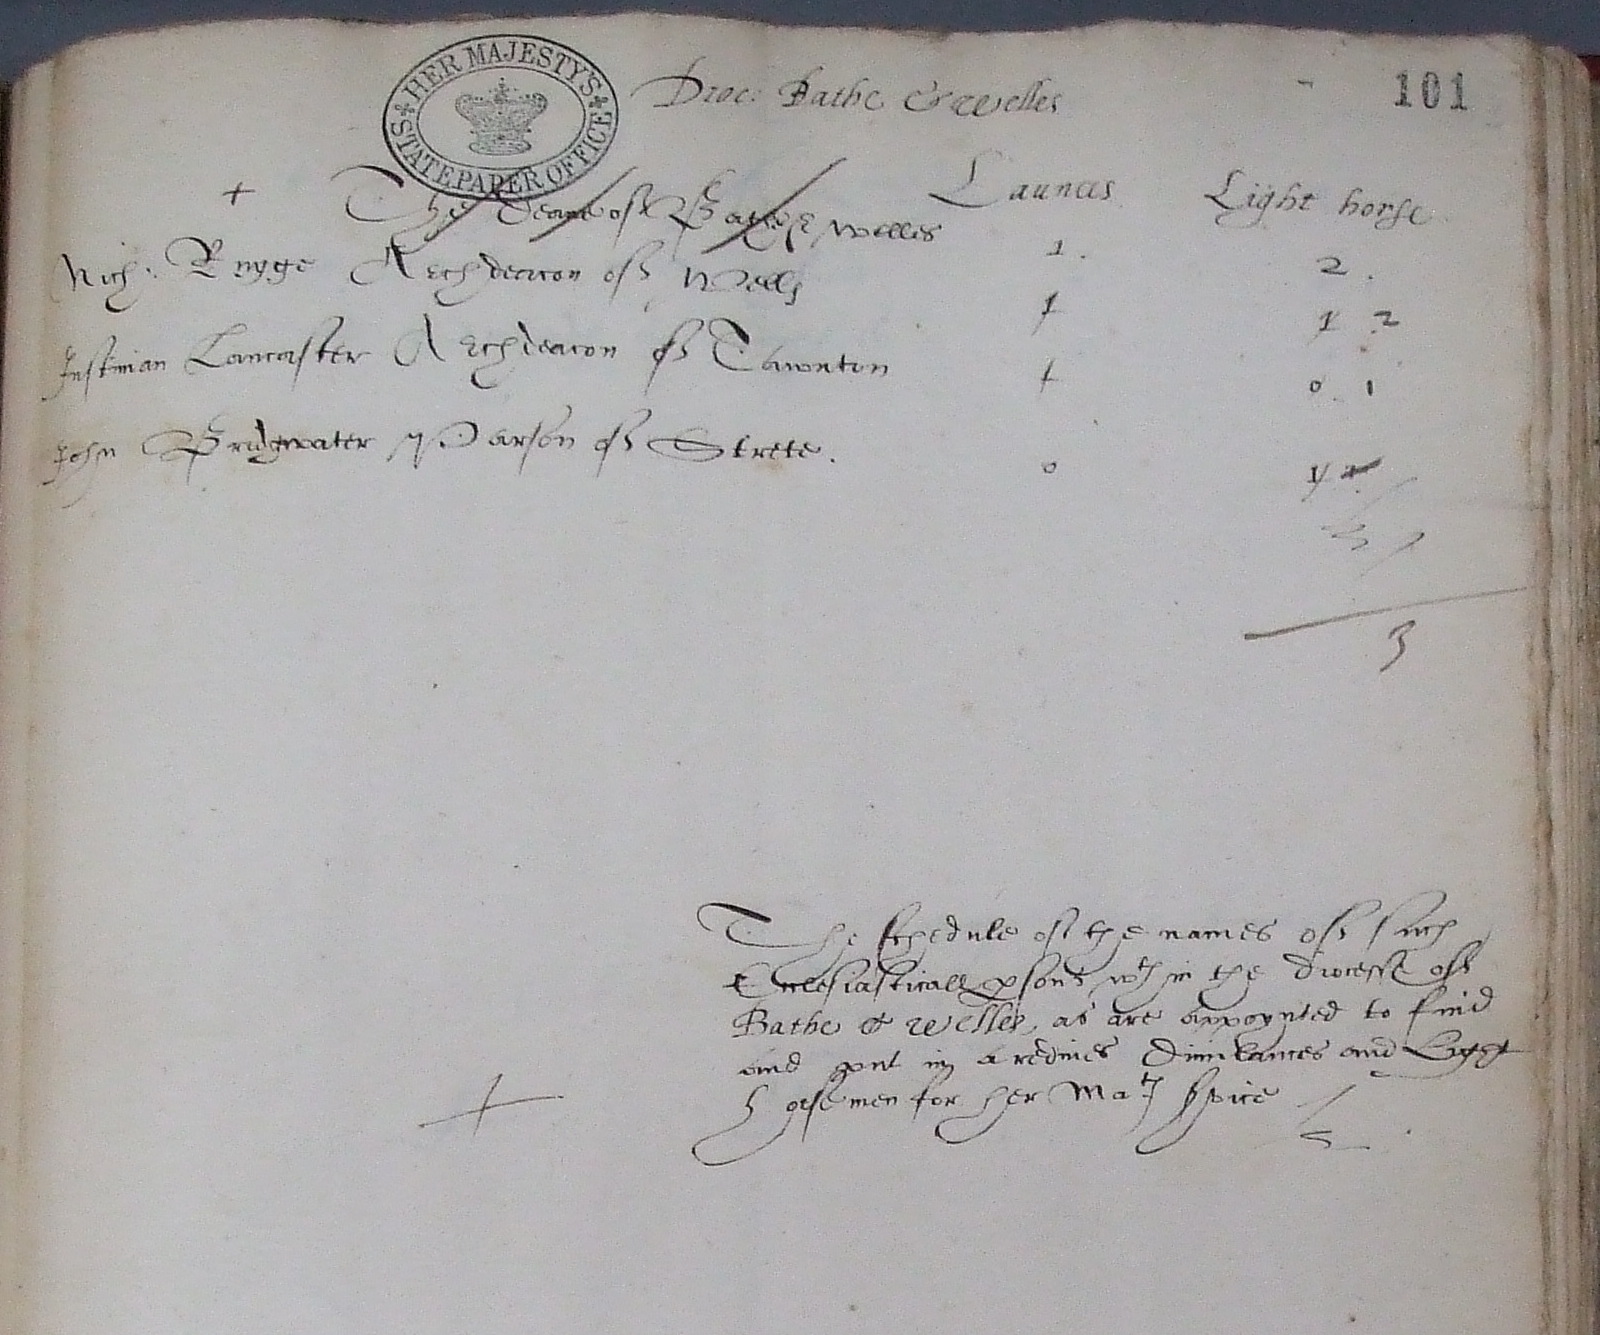 HER MAJESTY'S STATE PAPER OFFICE
Dioc: Bathe & Welles
101
Launces Light horse
+ The Deane off Bathe & Welles 1. 2.
Nich: Archdeacon off Wells 1 1 2
Justinian Lancaster Archdeacon off Tawnton 1 0 1
John Bridgwater Parson off Strete. 0 1
3
The schedule off the names off such
Ecclesiasticall psons wth in the diocesse off
Bathe & Welles as are appoynted to find
and put in a redines Dimilances and Lyght
horsemen for her Matis service